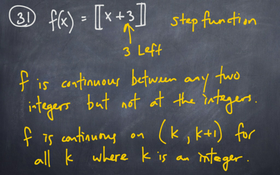 31 f(x) = [[x + 3]] step function
3 Left
f is continuous between any two
integers but not at the integers.
f is continuous on (k, k+1) for
all k where k is an integer.